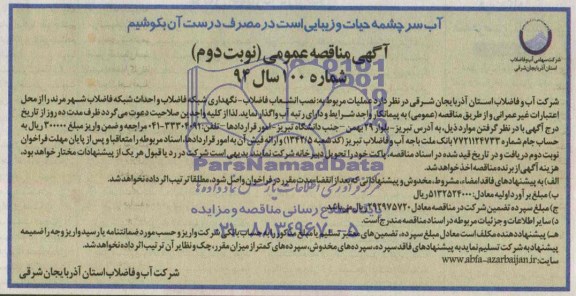 آب سر چشمه حیات و زیبایی است در مصرف درست آن بکوشیم
آگهی مناقصه عمومی (نوبت دوم)
شماره ۱۰۰ سال ۹۴
شرکت سهامی آب و فاضلاب
استان آذربایجان شرقی
شرکت آب و فاضلاب استان آذربایجان شرقی در نظر دارد عملیات مربوط به: نصب انشعاب فاضلاب - نگهداری شبکه فاضلاب و احداث شبکه فاضلاب شهر مرند را از محل
اعتبارات غیر عمرانی و از طریق مناقصه (عمومی) به پیمانکار واجد شرایط و دارای رتبه آب واگذار نماید. لذا از کلیه واجدین صلاحیت دعوت می گردد ظرف مدت ده روز از تاریخ
درج آگهی با در نظر گرفتن موارد ذیل، به آدرس تبریز - بلوار ۲۹ بهمن - جنب دانشگاه تبریز - امور قراردادها - تلفن مراجعه و ضمن واریز مبلغ ۳۰۰۰۰۰ ریال به
حساب جام شماره بانک ملت باجه آب و فاضلاب تبریز (کد شعبه ۱۳۴۲/۵) و ارائه فیش آن به امور قراردادها، اسناد مربوطه را متعاقبا و از پایان مهلت فراخوان
نوبت دوم دریافت و در تاریخ قید شده در اسناد مناقصه، پاکت خود را تحویل دبیرخانه شرکت نمایند. بدیهی است شرکت در رد یا قبول هر یک از پیشنهادات مختار خواهد بود.
هزینه آگهی از برنده مناقصه اخذ خواهد شد.
الف) به پیشنهادهای فاقد امضاء، مشروط، مخدوش و پیشنهاداتی که بعد از انقضا مدت مقرر در فراخوان واصل شود، مطلقا ترتیب اثر داده نخواهد شد.
ب) مبلغ برآورد اولیه معادل: ریال
ج) مبلغ سپرده تضمین شرکت در مناقصه معادل: ریال میباشد
د) سایر اطلاعات و جزئیات مربوطه در اسناد مناقصه مندرج است.
ه) پیشنهاد دهنده مکلف است معادل مبلغ سپرده، تضمین های معتبر حساب بانکی شرکت واریز و حسب مورد ضمانتنامه یا رسید واریز وجه را ضمیمه
پیشنهاد به شرکت تسلیم نماید به پیشنهادهای فاقد سپرده، سپرده های مخدوش، سپرده های کمتر از میزان مقرر، چک و نظایر آن ترتیب اثر داده نخواهد شد.
سایت: www.abfa-azarbaijan.ir
شرکت آب و فاضلاب استان آذربایجان شرقی
ParsNamadData
رسانی مناقصه و مزایده
۰۲۱-۸۸۳۴۹۶۷۰-۵